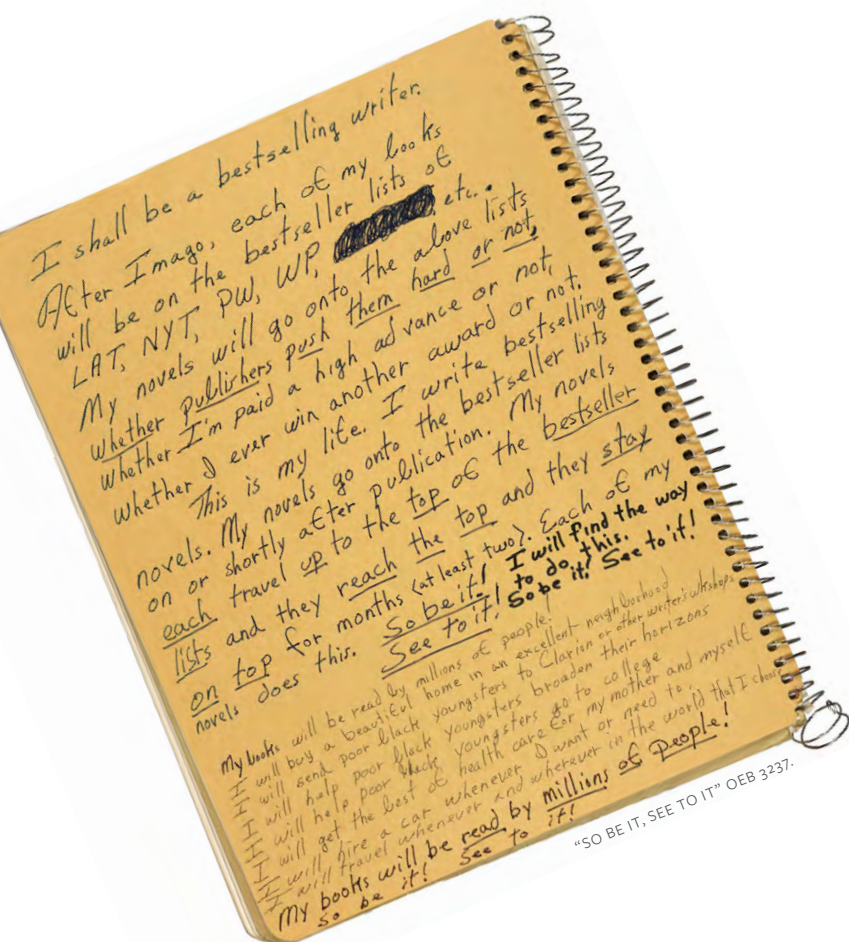 I shall be a bestselling writer.
After Imago, each of my books
will be on the bestseller lists of
LAT, NYT, PW, WP, etc..
My novels will go onto the above lists
whether publishers push them hard or not,
whether I'm paid a high advance or not,
whether I ever win another award or not.
This is my life. I write bestselling
novels. My novels go onto the bestseller lists
on or shortly after publication. My novels
each travel up to the top of the bestseller
lists and they reach the top and they stay
on top for months (at least two). Each of my
novels does this. So be it! I will find the way
See to it! to do this.
So be it! See to it!
My books will be read by millions of people.
I will buy a beautiful home in an excellent neighborhood
I will send poor black youngsters to Clarion or other writer's wkshops
I will help poor black youngsters broaden their horizons
I will help poor black youngsters go to college
I will get the best of health care for my mother and myself
I will hire a car whenever I want or need to.
I will travel whenever and wherever in the world that I choose
My books will be read by millions of people!
So be it! See to it!
"SO BE IT, SEE TO IT" OEB 3237.